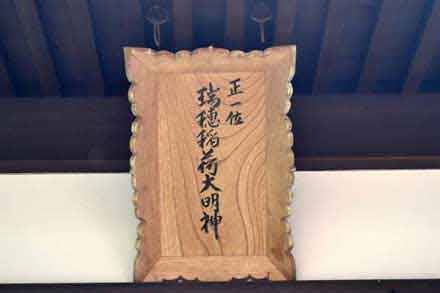 正一位
瑞穂稲荷大明神